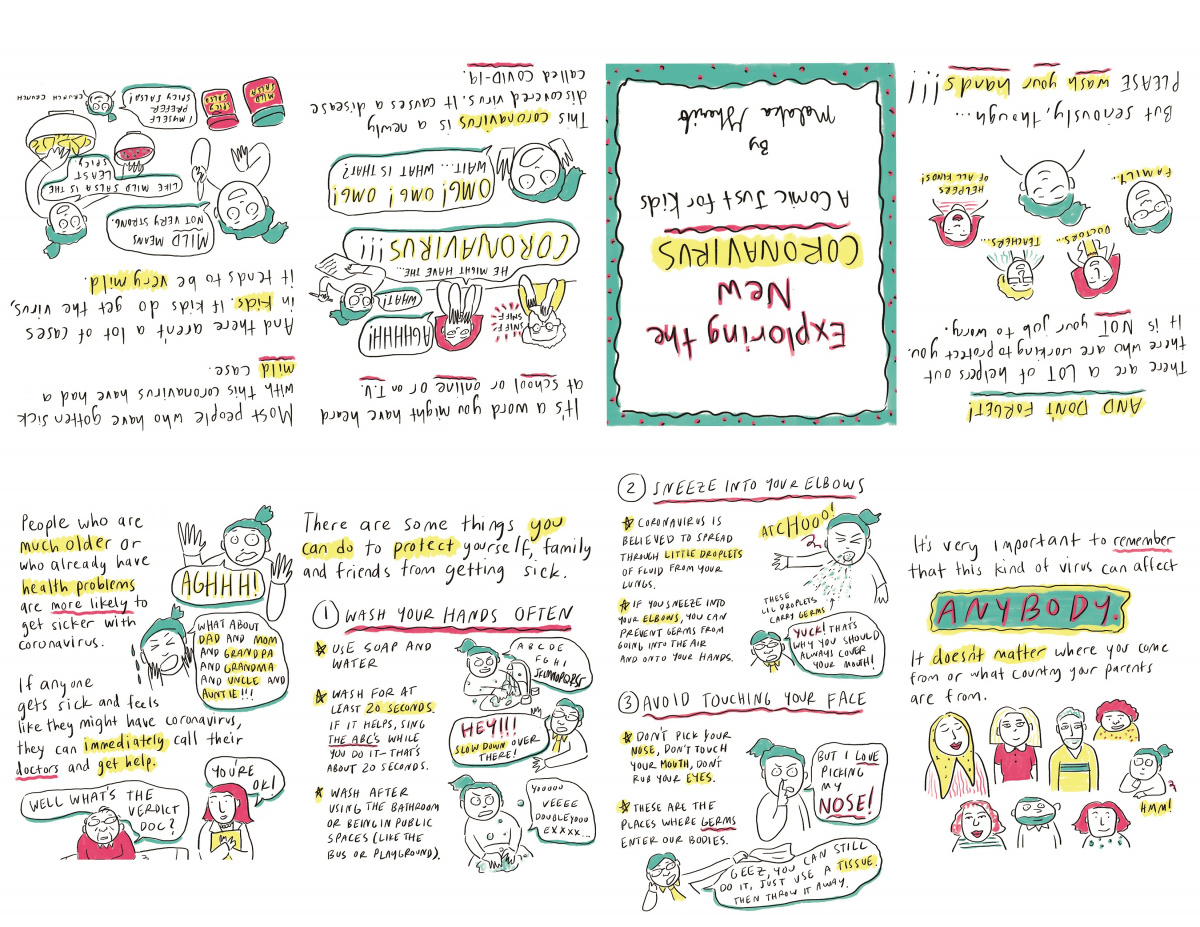 Exploring the
New
CORONAVIRUS
A Comic Just for Kids
By
Malaka Gharib
It's a word you might have heard
at school or online or on T.V.
SNIFF
SNIFF
AGHHHH!
WHAT?
HE MIGHT HAVE THE...
CORONAVIRUS!!!
OMG! OMG! OMG!
WAIT... WHAT IS THAT?
This coronavirus is a newly
discovered virus. It causes a disease
called COVID-19.
Most people who have gotten sick
with this coronavirus have had a
mild case.
And there aren't a lot of cases
in kids. If kids do get the virus,
it tends to be very mild.
MILD MEANS
NOT VERY STRONG.
LIKE MILD SALSA IS THE
LEAST
SPICY
I MYSELF
PREFER
SPICY SALSA!
CRUNCH CRUNCH
SPICY
SALSA
MILD
SALSA
People who are
much older or
who already have
health problems
are more likely to
get sicker with
coronavirus.
AGHHH!
WHAT ABOUT
DAD AND MOM
AND GRANDPA
AND GRANDMA
AND UNCLE AND
AUNTIE!!!
If anyone
gets sick and feels
like they might have coronavirus,
they can immediately call their
doctors and get help.
WELL WHAT'S THE
VERDICT
DOC?
YOU'RE
OK!
There are some things you
can do to protect yourself, family
and friends from getting sick.
1 WASH YOUR HANDS OFTEN
USE SOAP AND
WATER
A B C D E
F G H I
JKLMNOPQRS
WASH FOR AT
LEAST 20 SECONDS.
IF IT HELPS, SING
THE ABC'S WHILE
YOU DO IT-THAT'S
ABOUT 20 SECONDS.
HEY!!!
SLOW DOWN OVER
THERE!
WASH AFTER
USING THE BATHROOM
OR BEING IN PUBLIC
SPACES (LIKE THE
BUS OR PLAYGROUND).
YOOOOO
VEEEE
DOUBLEYOOO
EXXXX...
2 SNEEZE INTO YOUR ELBOWS
CORONAVIRUS IS
BELIEVED TO SPREAD
THROUGH LITTLE DROPLETS
OF FLUID FROM YOUR
LUNGS.
ATCHOOO!
IF YOU SNEEZE INTO
YOUR ELBOWS, YOU CAN
PREVENT GERMS FROM
GOING INTO THE AIR
AND ONTO YOUR HANDS.
THESE
LIL DROPLETS
CARRY GERMS
YUCK! THAT'S
WHY YOU SHOULD
ALWAYS COVER
YOUR MOUTH!
3 AVOID TOUCHING YOUR FACE
DON'T PICK YOUR
NOSE, DON'T TOUCH
YOUR MOUTH, DON'T
RUB YOUR EYES.
BUT I LOVE
PICKING
MY
NOSE!
THESE ARE THE
PLACES WHERE GERMS
ENTER OUR BODIES.
GEEZ, YOU CAN STILL
DO IT, JUST USE A TISSUE.
THEN THROW IT AWAY.
It's very important to remember
that this kind of virus can affect
ANYBODY.
It doesn't matter where you come
from or what country your parents
are from.
HMM!
AND DON'T FORGET!
There are a LOT of helpers out
there who are working to protect you.
It is NOT your job to worry.
DOCTORS...
TEACHERS...
FAMILY...
HELPERS
OF ALL KINDS!
But seriously, though...
PLEASE wash your hands!!!